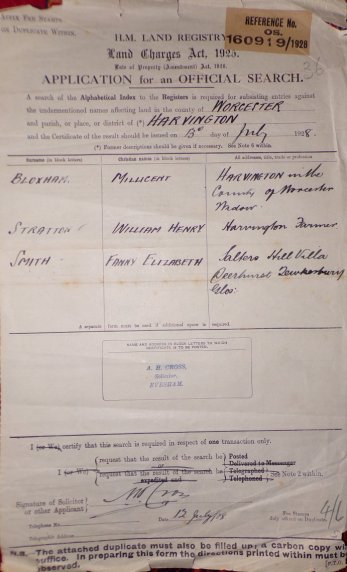 AFFIX FEE STAMPS
ON DUPLICATE WITHIN.
REFERENCE No.
OS.
160919/1928
36
H.M. LAND REGISTRY
Land Charges Act, 1925.
Law of Property (Amendment) Act, 1926.
APPLICATION for an OFFICIAL SEARCH.
A search of the Alphabetical Index to the Registers is required for subsisting entries against
the undermentioned names affecting land in the county of WORCESTER
and parish, or place, or district of (*) HARVINGTON
and the Certificate of the result should be issued on 13th day of July 1928.
(*) Former descriptions should be given if necessary. See Note 6 within.
Surname (in block letters) Christian names (in block letters) All addresses, title, trade or profession
BLOXHAM. MILLICENT HARVINGTON in the
County of Worcester
Widow.
STRATTON WILLIAM HENRY Harvington Farmer
SMITH FANNY ELIZABETH Salters Hill Villa
Deerhurst Tewkesbury
Glos:
A separate form must be used if additional space is required.
NAME AND ADDRESS IN BLOCK LETTERS TO WHICH
CERTIFICATE IS TO BE POSTED.
A. H. CROSS,
Solicitor,
EVESHAM.
I (or We) certify that this search is required in respect of one transaction only.
I (or We) (request that the result of the search be) Posted
or Delivered to Messenger
(request that the result of the search be Telegraphed
expedited and) Telephoned See Note 2 within.
Signature of Solicitor
or other Applicant
Date 12 July/28
Telephone No.
Telegraphic Address
Fee Stamps
affixed on Duplicate
N.B. The attached duplicate must also be filled up, a carbon copy will
suffice. In preparing this form the directions printed within must be
observed. [P.T.O.